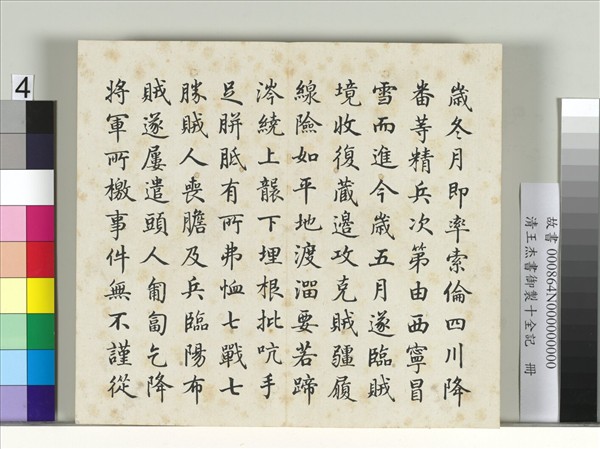 歲冬月即率索倫四川降
番等精兵次第由西寧冒
雪而進今歲五月遂臨賊
境收復藏邊攻克賊疆履
線險如平地渡溜要若蹄
涔繞上襲下埋根批吭手
足胼胝有所弗恤七戰七
勝賊人喪膽及兵臨陽布
賊遂屢遣頭人匍匐乞降
將軍所檄事件無不謹從
故書 000864N000000000
清王杰書御製十全記 冊
4